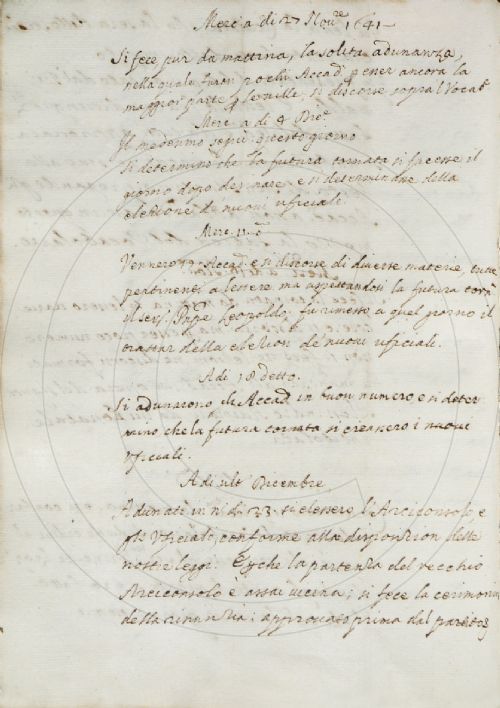 Merc.a di 27 Nov.re 1641
Si fece pur da mattina, la solita adunanza,
nella quale furon pochi Accad.i p esser ancora la
maggior parte p le ville, si discorse sopra l Vocab.o
Merc.a di 4 Dic.e
Il medesimo seguì questo giorno
Si determinò che la futura tornata si facesse il
giorno dopo desinare, e si determinò della
elezzione de nuovi ufiziali
Merc. 11. d.o
Vennero 19. Accad.i e si discorse di diverse materie, tutte
pertinenti a lettere ma aspettandosi la futura torn.a
il Ser.mo Pnpe Leopoldo, fu rimesso a quel giorno il
trattar della elezion de nuovi ufiziali.
A di 18 detto.
Si adunarono li Accad.i in buon numero e si deter
minò che la futura tornata si creassero i nuovi
Vfiziali.
A di ult.o Dicembre
Adunati in n.o di 23. si elessero l'Arciconsolo e
gl'Vfiziali, conforme alla disposizion delle
nostre leggi. E pche la partenza del vecchio
Arciconsolo è assai vicina; si fece la cerimonia
della rinunzia: approvato prima dal partito